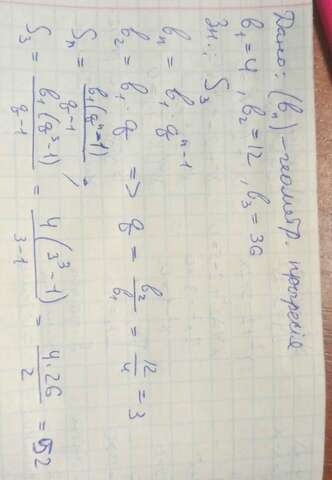 Дано: (bₙ) - геометр. прогресія
b₁ = 4, b₂ = 12, b₃ = 36
Зн.: S₃
bₙ = b₁ · qⁿ⁻¹
b₂ = b₁ · q => q = b₂/b₁ = 12/4 = 3
Sₙ = b₁(qⁿ-1)/q-1;
S₃ = b₁(q³-1)/q-1 = 4(3³-1)/3-1 = 4·26/2 = 52